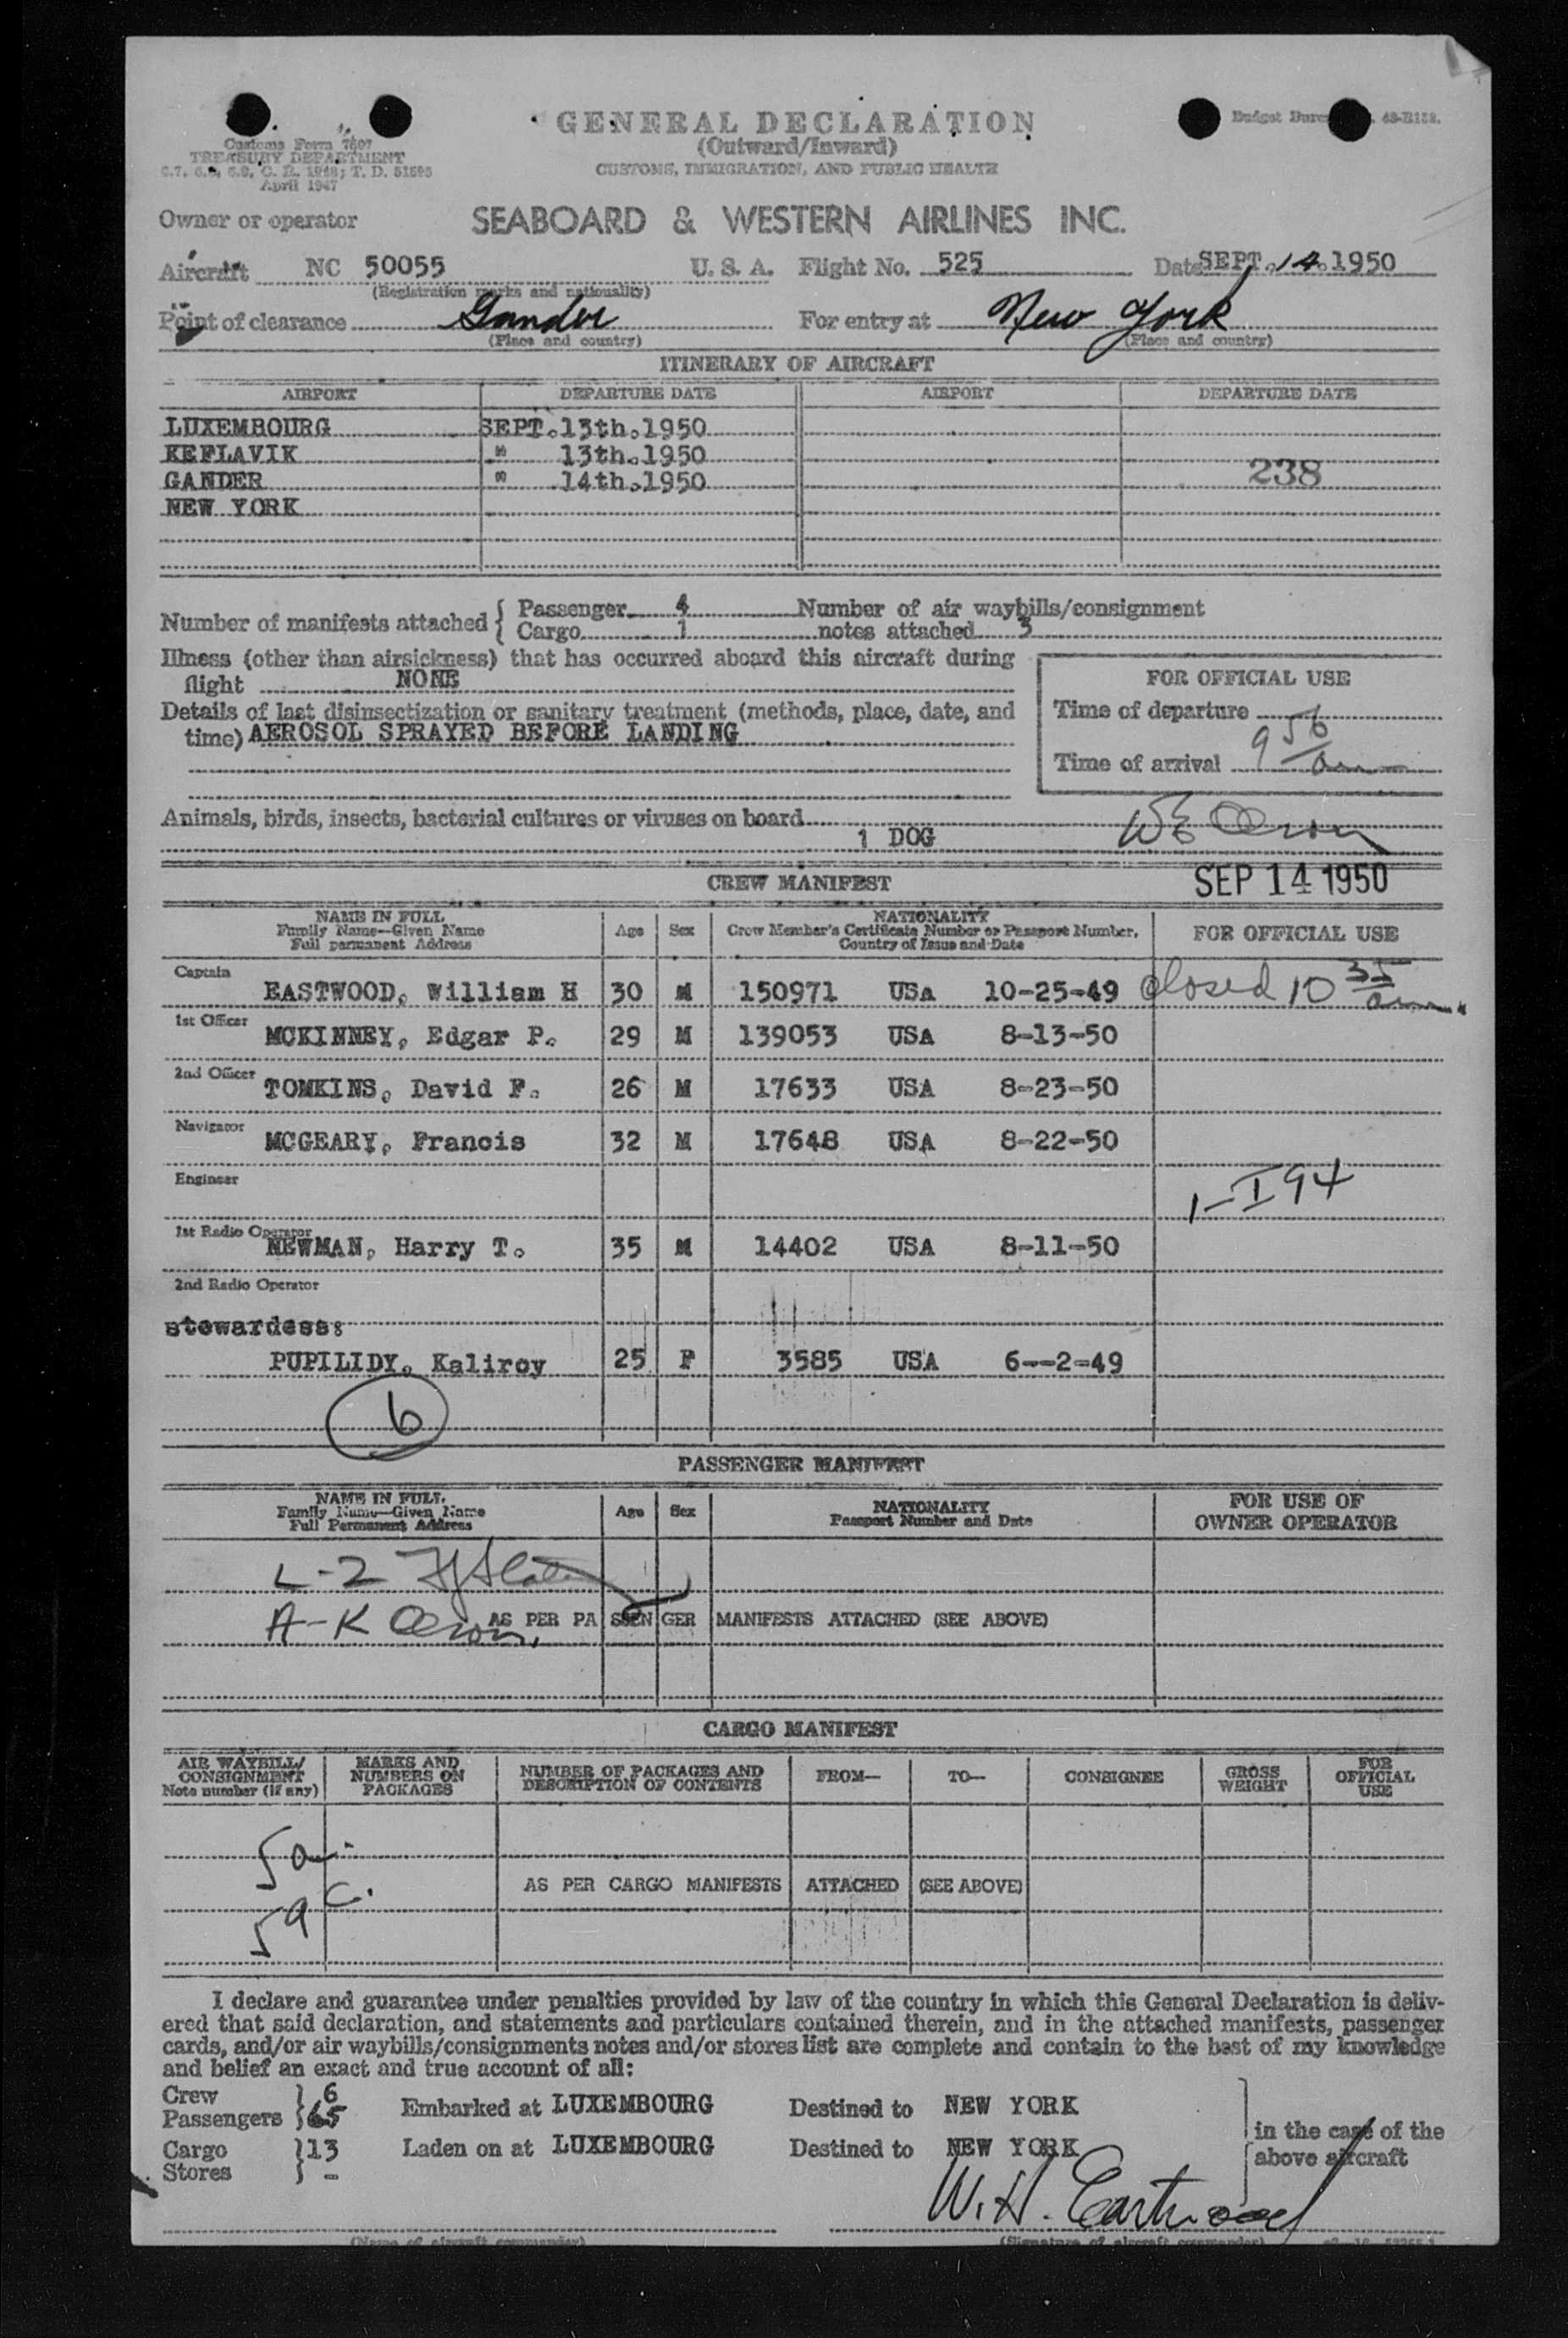 GENERAL DECLARATION
(Outward/Inward)
CUSTOMS, IMMIGRATION, AND PUBLIC HEALTH
Customs Form 7507
TREASURY DEPARTMENT
April 1947
Budget 48-R152.
Owner or operator SEABOARD & WESTERN AIRLINES INC.
Aircraft NC 50055 U. S. A. Flight No. 525 Date SEPT. 14. 1950
(Registration marks and nationality)
Point of clearance Gander For entry at New York
(Place and country) (Place and country)
ITINERARY OF AIRCRAFT
AIRPORT DEPARTURE DATE AIRPORT DEPARTURE DATE
LUXEMBOURG SEPT. 13th. 1950
KEFLAVIK " 13th. 1950
GANDER " 14th. 1950 238
NEW YORK
Number of manifests attached { Passenger 4 Number of air waybills/consignment
Cargo 1 notes attached 3
Illness (other than airsickness) that has occurred aboard this aircraft during
flight NONE
FOR OFFICIAL USE
Details of last disinsectization or sanitary treatment (methods, place, date, and
time) AEROSOL SPRAYED BEFORE LANDING
Time of departure
Time of arrival 9 56 am
Animals, birds, insects, bacterial cultures or viruses on board
1 DOG
CREW MANIFEST SEP 14 1950
NAME IN FULL
Family Name—Given Name
Full permanent Address
Age Sex
NATIONALITY
Crew Member's Certificate Number or Passport Number,
Country of Issue and Date
FOR OFFICIAL USE
Captain
EASTWOOD, William H 30 M 150971 USA 10-25-49 closed 10 35 am
1st Officer
MCKINNEY, Edgar P. 29 M 139053 USA 8-13-50
2nd Officer
TOMKINS, David F. 26 M 17633 USA 8-23-50
Navigator
MCGEARY, Francis 32 M 17648 USA 8-22-50
Engineer
1-I94
1st Radio Operator
NEWMAN, Harry T. 35 M 14402 USA 8-11-50
2nd Radio Operator
stewardess:
PUPILIDY, Kaliroy 25 F 3585 USA 6--2-49
6
PASSENGER MANIFEST
NAME IN FULL
Family Name—Given Name
Full Permanent Address
Age Sex
NATIONALITY
Passport Number and Date
FOR USE OF
OWNER OPERATOR
L-Z
A-K
AS PER PASSENGER MANIFESTS ATTACHED (SEE ABOVE)
CARGO MANIFEST
AIR WAYBILL/
CONSIGNMENT
Note number (if any)
MARKS AND
NUMBERS ON
PACKAGES
NUMBER OF PACKAGES AND
DESCRIPTION OF CONTENTS
FROM— TO— CONSIGNEE
GROSS
WEIGHT
FOR
OFFICIAL
USE
5 a.
AS PER CARGO MANIFESTS ATTACHED (SEE ABOVE)
59 c.
I declare and guarantee under penalties provided by law of the country in which this General Declaration is deliv-
ered that said declaration, and statements and particulars contained therein, and in the attached manifests, passenger
cards, and/or air waybills/consignments notes and/or stores list are complete and contain to the best of my knowledge
and belief an exact and true account of all:
Crew } 6
Passengers } 65 Embarked at LUXEMBOURG Destined to NEW YORK
in the case of the
above aircraft
Cargo } 13 Laden on at LUXEMBOURG Destined to NEW YORK
Stores } -
W. H. Eastwood
(Name of aircraft commander) (Signature of aircraft commander)